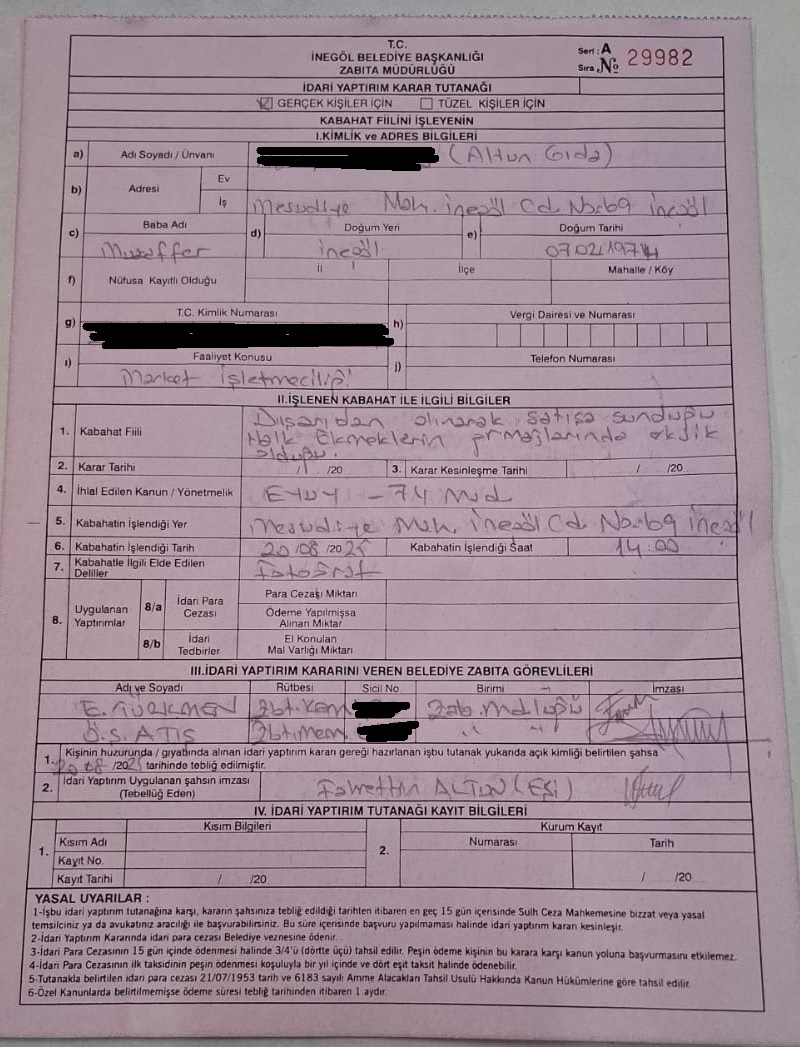 T.C.
İNEGÖL BELEDİYE BAŞKANLIĞI
ZABITA MÜDÜRLÜĞÜ
Seri : A
Sıra .№ 29982
İDARİ YAPTIRIM KARAR TUTANAĞI
GERÇEK KİŞİLER İÇİN TÜZEL KİŞİLER İÇİN
KABAHAT FİİLİNİ İŞLEYENİN
I.KİMLİK ve ADRES BİLGİLERİ
a) Adı Soyadı / Ünvanı (Altun Gıda)
b) Adresi Ev
İş Mesudiye Mah. İnegöl Cd. No:69 İnegöl
c) Baba Adı d) Doğum Yeri e) Doğum Tarihi
Muzaffer İnegöl 07.02.1974
f) Nüfusa Kayıtlı Olduğu İl İlçe Mahalle / Köy
g) T.C. Kimlik Numarası h) Vergi Dairesi ve Numarası
ı) Faaliyet Konusu j) Telefon Numarası
Market İşletmeciliği
II.İŞLENEN KABAHAT İLE İLGİLİ BİLGİLER
1. Kabahat Fiili Dışarıdan alınarak satışa sunduğu
Halk Ekmeklerin gramajlarında eksik
olduğu.
2. Karar Tarihi / /20 3. Karar Kesinleşme Tarihi / /20
4. İhlal Edilen Kanun / Yönetmelik - 74 Mad
5. Kabahatin İşlendiği Yer Mesudiye Mah. İnegöl Cd. No:69 İnegöl
6. Kabahatin İşlendiği Tarih 20/08/2025 Kabahatin İşlendiği Saat 14:00
7. Kabahatle İlgili Elde Edilen
Deliller Fotoğraf
8. Uygulanan Yaptırımlar 8/a İdari Para Cezası Para Cezası Miktarı
Ödeme Yapılmışsa Alınan Miktar
8/b İdari Tedbirler El Konulan Mal Varlığı Miktarı
III.İDARİ YAPTIRIM KARARINI VEREN BELEDİYE ZABITA GÖREVLİLERİ
Adı ve Soyadı Rütbesi Sicil No. Birimi İmzası
E. TÜRKMEN Zbt.Kom Zab. Müdlüğü
Ö.S. ATIŞ Zbt.Mem. " "
1. Kişinin huzurunda / gıyabında alınan idari yaptırım kararı gereği hazırlanan işbu tutanak yukarıda açık kimliği belirtilen şahsa
20/08/2025 tarihinde tebliğ edilmiştir.
2. İdari Yaptırım Uygulanan şahsın imzası
(Tebellüğ Eden) Fahrettin ALTUN (EŞİ)
IV. İDARİ YAPTIRIM TUTANAĞI KAYIT BİLGİLERİ
Kısım Bilgileri Kurum Kayıt
1. Kısım Adı 2. Numarası Tarih
Kayıt No.
Kayıt Tarihi / /20 / /20
YASAL UYARILAR :
1-İşbu idari yaptırım tutanağına karşı, kararın şahsınıza tebliğ edildiği tarihten itibaren en geç 15 gün içerisinde Sulh Ceza Mahkemesine bizzat veya yasal
temsilciniz ya da avukatınız aracılığı ile başvurabilirsiniz. Bu süre içerisinde başvuru yapılmaması halinde idari yaptırım kararı kesinleşir.
2-İdari Yaptırım Kararında idari para cezası Belediye veznesine ödenir.
3-İdari Para Cezasının 15 gün içinde ödenmesi halinde 3/4'ü (dörtte üçü) tahsil edilir. Peşin ödeme kişinin bu karara karşı kanun yoluna başvurmasını etkilemez.
4-İdari Para Cezasının ilk taksidinin peşin ödenmesi koşuluyla bir yıl içinde ve dört eşit taksit halinde ödenebilir.
5-Tutanakla belirtilen idari para cezası 21/07/1953 tarih ve 6183 sayılı Amme Alacakları Tahsil Usulü Hakkında Kanun Hükümlerine göre tahsil edilir.
6-Özel Kanunlarda belirtilmemişse ödeme süresi tebliğ tarihinden itibaren 1 aydır.